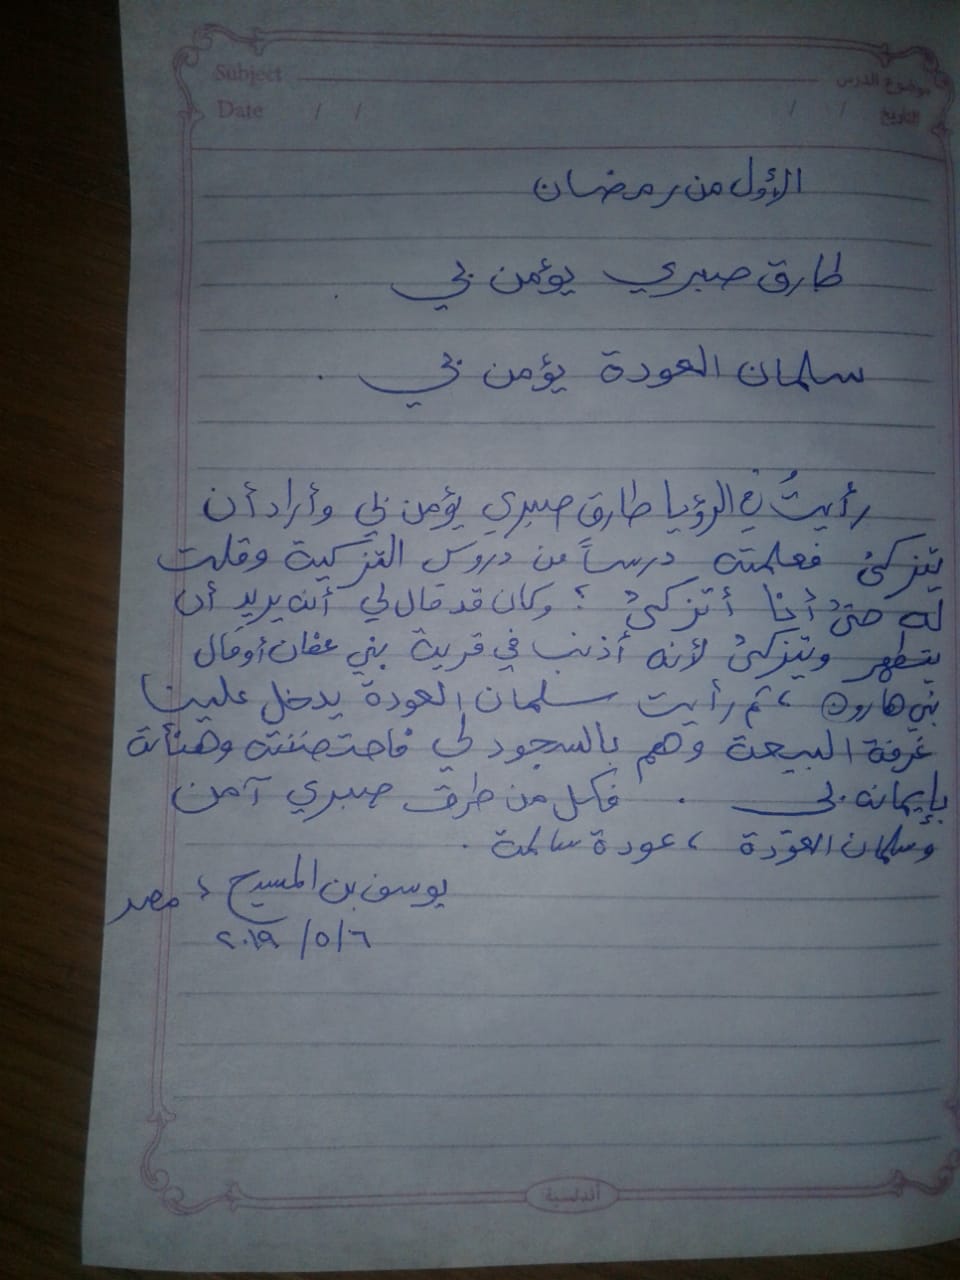 Subject موضوع الدرس
Date / / / / التاريخ
الأول من رمضان
طارق صبري يؤمن بي .
سلمان العودة يؤمن بي .
رأيتُ في الرؤيا طارق صبري يؤمن بي وأراد أن
يتزكىٰ فعلمته درساً من دروس التزكية وقلت
له حتىٰ أنا أتزكىٰ ؟ وكان قد قال لي أنه يريد أن
يتطهر ويتزكىٰ لأنه أذنب في قرية بني عفان أو قال
بني هارون ، ثم رأيت سلمان العودة يدخل علينا
غرفة البيعة وهم بالسجود لي فاحتضنته وهنأته
بإيمانه بي . فكل من طرق صبري آمن
وسلمان العودة ، عودة سالمة .
يوسف بن المسيح ، مصر
٢٠١٩ /٥/٦
أندلسية